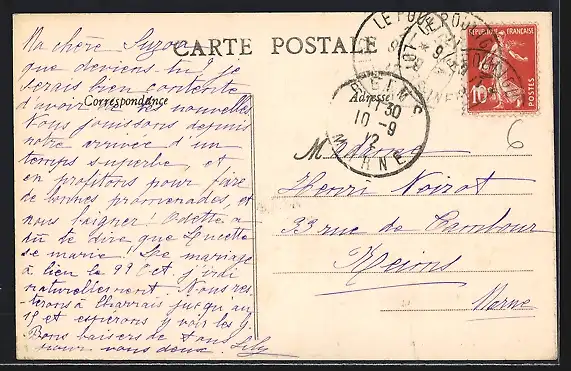 CARTE POSTALE
Correspondance
Adresse
Ma chère Suzon
que deviens tu? je
serais bien contente
d'avoir de tes nouvelles
Nous jouissons depuis
notre arrivée d'un
temps superbe, et
en profitons pour faire
de bonnes promenades, et
nous baigner! Odette a
dû te dire que Lucette
se marie! Le mariage
à lieu le 22 Oct. j'irai
naturellement. Nous res-
-terons à jusqu'au
15 et espérons y voir les
Bons baisers de tous
pour vous deux. Lily
LE POU
REIMS
1 30
10 - 9
12
MARNE
REPUBLIQUE FRANÇAISE
10
POSTES
6
M
Henri Noirot
33 rue de Cambour
Reims
Marne